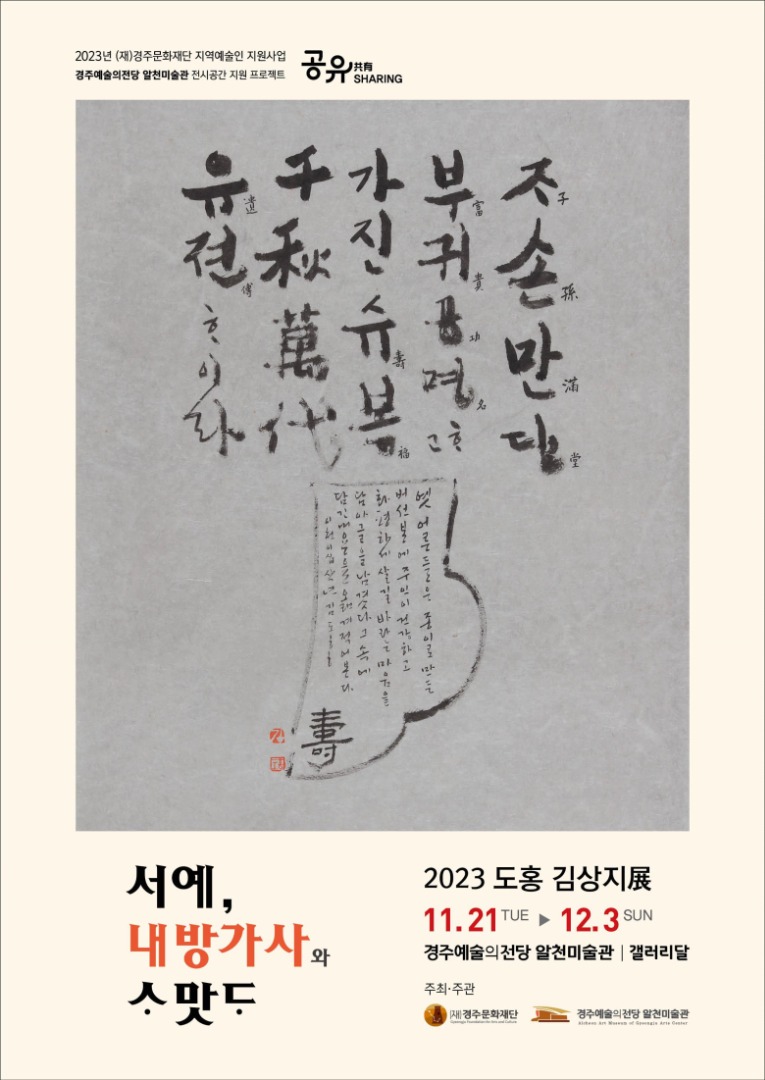 2023년 (재)경주문화재단 지역예술인 지원사업
경주예술의전당 알천미술관 전시공간 지원 프로젝트
공유共有
SHARING
ᄌᆞ손만당
子孫滿堂
부귀공명ᄒᆞ고
富貴功名
가진슈복
壽福
千秋萬代
유젼ᄒᆞ이라
遺傳
옛 어른들은 종이로 만든
버선본에 주인이 건강하고
화평하게 살길 바라는 마음을
담아 글을 남겼다. 그 속에
담긴 내용을 적어본다.
이천이십삼년
壽
서예,
내방가사와
ᄉᆞ맛ᄃᆞ
2023 도홍 김상지展
11.21 TUE ▶ 12.3 SUN
경주예술의전당 알천미술관 | 갤러리달
주최·주관
(재)경주문화재단
Gyeongju Foundation for Arts and Culture
경주예술의전당 알천미술관
Alcheon Art Museum of Gyeongju Arts Center